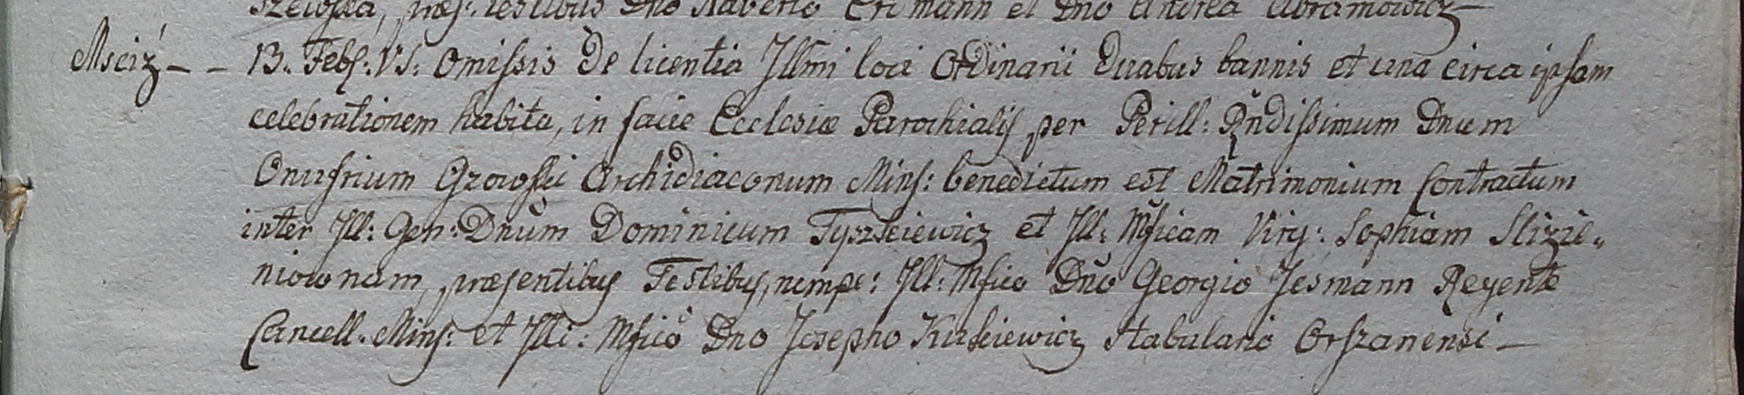 szewska, præs: testibus Dno Xaverio Erdmann et Dno Andrea Abramowicz
Msciż — 13. Febr: V.S: Omissis de licentia Illmi loci Ordinarii duabus bannis et una circa ipsam
celebrationem habita, in facie Ecclesiæ Parochialis per Perill: Rndissimum Dnum
Onufrium Gzowski Archidiaconum Mins: benedictum est Matrimonium Contractum
inter Ill: Gen: Dnum Dominicum Tyszkiewicz et Ill: Mficam Virg: Sophiam Slizie„
niownam, præsentibus Testibus, nempe: Ill: Mfico Dno Georgio Jesmann Regente
Cancell. Mins: et Illi: Mfico Dno Josepho Kurkiewicz Stabulario Orszanensi —